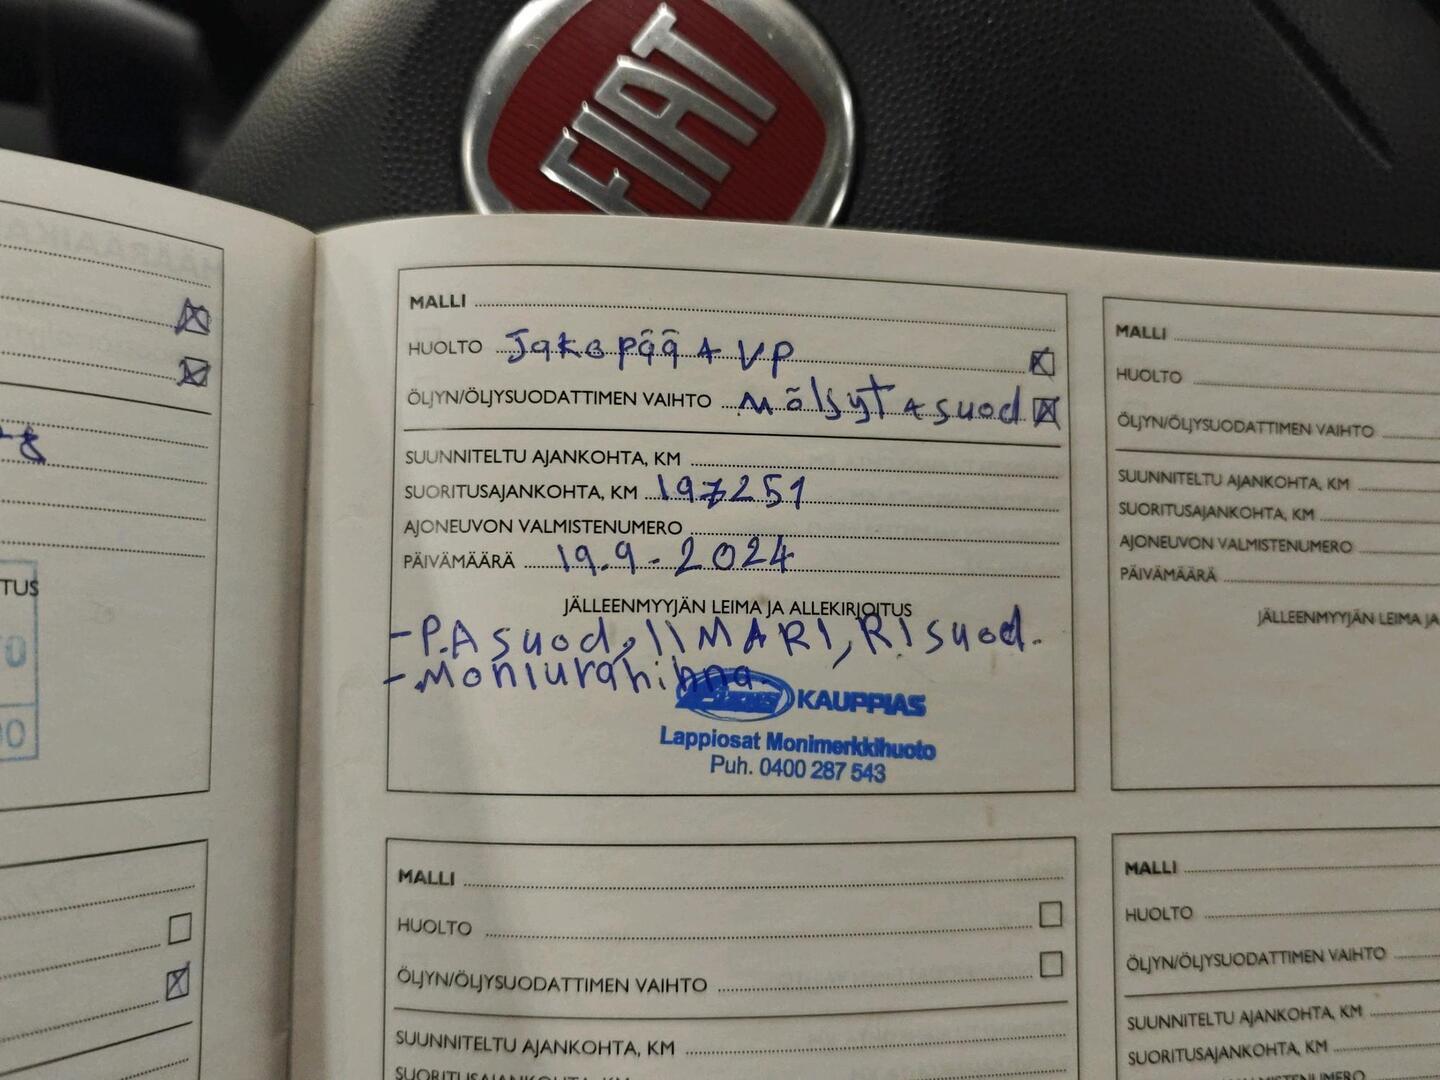 FIAT
TUS
MALLI
HUOLTO Jakopää + VP
ÖLJYN/ÖLJYSUODATTIMEN VAIHTO Möljyt + suod
SUUNNITELTU AJANKOHTA, KM
SUORITUSAJANKOHTA, KM 197251
AJONEUVON VALMISTENUMERO
PÄIVÄMÄÄRÄ 19.9-2024
JÄLLEENMYYJÄN LEIMA JA ALLEKIRJOITUS
-P.A suod, IIMARI, RI suod.
-Moniurahihna
KAUPPIAS
Lappiosat Monimerkkihuolto
Puh. 0400 287 543
MALLI
HUOLTO
ÖLJYN/ÖLJYSUODATTIMEN VAIHTO
SUUNNITELTU AJANKOHTA, KM
SUORITUSAJANKOHTA, KM
AJONEUVON VALMISTENUMERO
PÄIVÄMÄÄRÄ
JÄLLEENMYYJÄN LEIMA JA
MALLI
HUOLTO
ÖLJYN/ÖLJYSUODATTIMEN VAIHTO
SUUNNITELTU AJANKOHTA, KM
SUORITUSAJANKOHTA, KM
MALLI
HUOLTO
ÖLJYN/ÖLJYSUODATTIMEN VAIHTO
SUUNNITELTU AJANKOHTA, KM
SUORITUSAJANKOHTA, KM
AJONEUVON VALMISTENUMERO